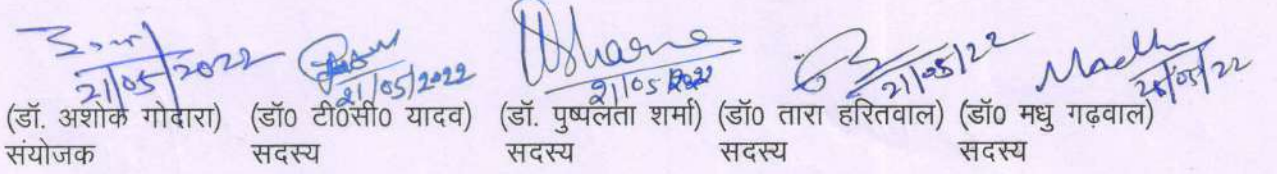 21/05/2022 21/05/2022 Sharma 21/05/2022 21/05/22 Madhu 21/05/22
(डॉ. अशोक गोदारा) (डॉ0 टी0सी0 यादव) (डॉ. पुष्पलता शर्मा) (डॉ0 तारा हरितवाल) (डॉ0 मधु गढ़वाल)
संयोजक सदस्य सदस्य सदस्य सदस्य